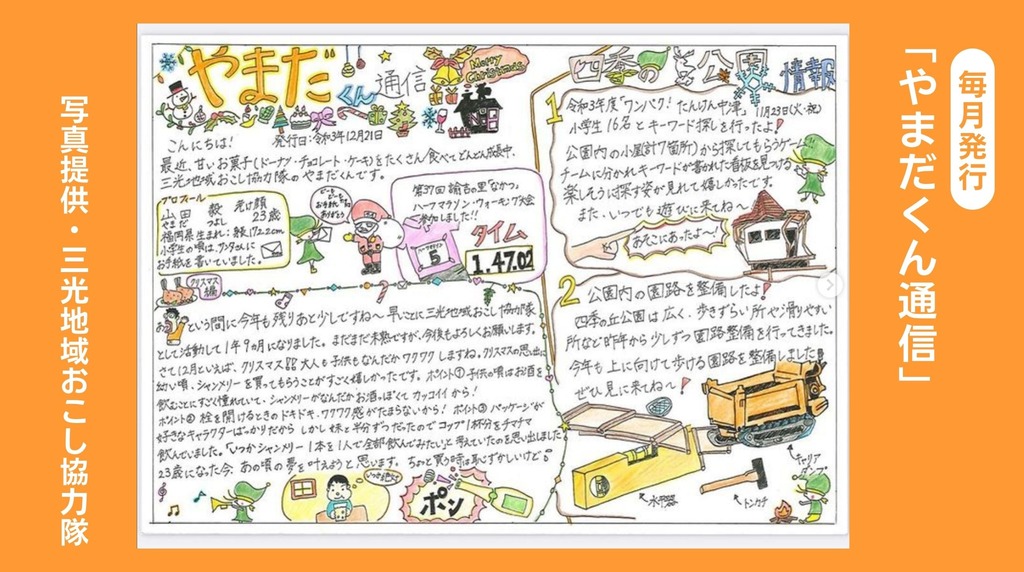 毎月発行
「やまだくん通信」
やまだくん通信
Merry Christmas
発行日:令和3年12月21日
こんにちは!
最近、甘いお菓子(ドーナツ・チョコレート・ケーキ)をたくさん食べてどんどん成長中、
三光地域おこし協力隊のやまだくんです。
プロフィール
山田 毅 老け顔
やまだ つよし 23歳
福岡県生まれ:身長172.2cm
小学生の頃は、サンタさんに
お手紙を書いていました。
第37回諭吉の里「なかつ」
ハーフマラソン・ウォーキング大会
参加しました!!
ハーフマラソン
5
タイム
1.47.02
クリスマス編
あという間に今年も残りあと少しですね〜早いことに三光地域おこし協力隊
として活動して1年9カ月になりました。まだまだ未熟ですが、今後もよろしくお願いします。
さて12月といえば、クリスマス!!大人も子供もなんだかワクワクしますね。クリスマスの思い出に
幼い頃、シャンメリーを買ってもらうことがすごく嬉しかったです。ポイント①子供の頃はお酒を
飲むことにすごく憧れていて、シャンメリーがなんだかお酒っぽくてカッコイイから!
ポイント②栓を開けるときのドキドキ、ワクワク感がたまらないから! ポイント③パッケージが
好きなキャラクターばっかりだから しかし妹と半分ずつだったのでコップ1杯分をチマチマ
飲んでいました。「いつかシャンメリー1本を1人で全部飲んでみたい」と考えていたのを思い出しました
23歳になった今、あの頃の夢を叶えようと思います。ちょっと買う時は恥ずかしいけど
ポン
四季の丘公園情報
1 令和3年度「ワンパク!たんけん中津」11月23日(火・祝)
小学生16名とキーワード探しを行ったよ!
公園内の小屋(計7箇所)から探してもらうゲーム!
チームに分かれキーワードが書かれた看板を見つけ
楽しそうに探す姿が見れて嬉しかったです。
また、いつでも遊びに来てね〜
あそこにあったよ〜!
2 公園内の園路を整備したよ!
四季の丘公園は広く、歩きずらい所や滑りやすい
所など昨年から少しずつ園路整備を行ってきました。
今年も上に向けて歩ける園路を整備しました!
ぜひ見に来てね〜!
水平器
トンカチ
キャリアダンプ
写真提供・三光地域おこし協力隊